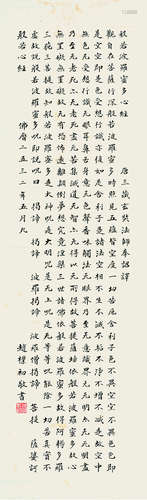 般若波羅蜜多心經　唐三藏玄奘法師奉詔譯
觀自在菩薩行深般若波羅蜜多時照見五蘊皆空度一切苦厄舍利子色不異空空不異色色即
是空空即是色受想行識亦復如是舍利子是諸法空相不生不滅不垢不淨不增不減是故空中
无色无受想行識无眼耳鼻舌身意无色聲香味觸法无眼界乃至无意識界无无明亦无无明盡
乃至无老死亦无老死盡无苦集滅道无智亦无得以无所得故菩提薩埵依般若波羅蜜多故心
无罣礙无罣礙故无有恐怖遠離顛倒夢想究竟涅槃三世諸佛依般若波羅蜜多故得阿耨多羅
三藐三菩提故知般若波羅蜜多是大神咒是大明咒是无上咒是无等等咒能除一切苦真實不
虛故說般若波羅蜜多咒即說咒曰　揭諦　揭諦　波羅揭諦　波羅僧揭諦　菩提　薩婆訶
般若心經
佛曆二五三二年五月　趙樸初敬書